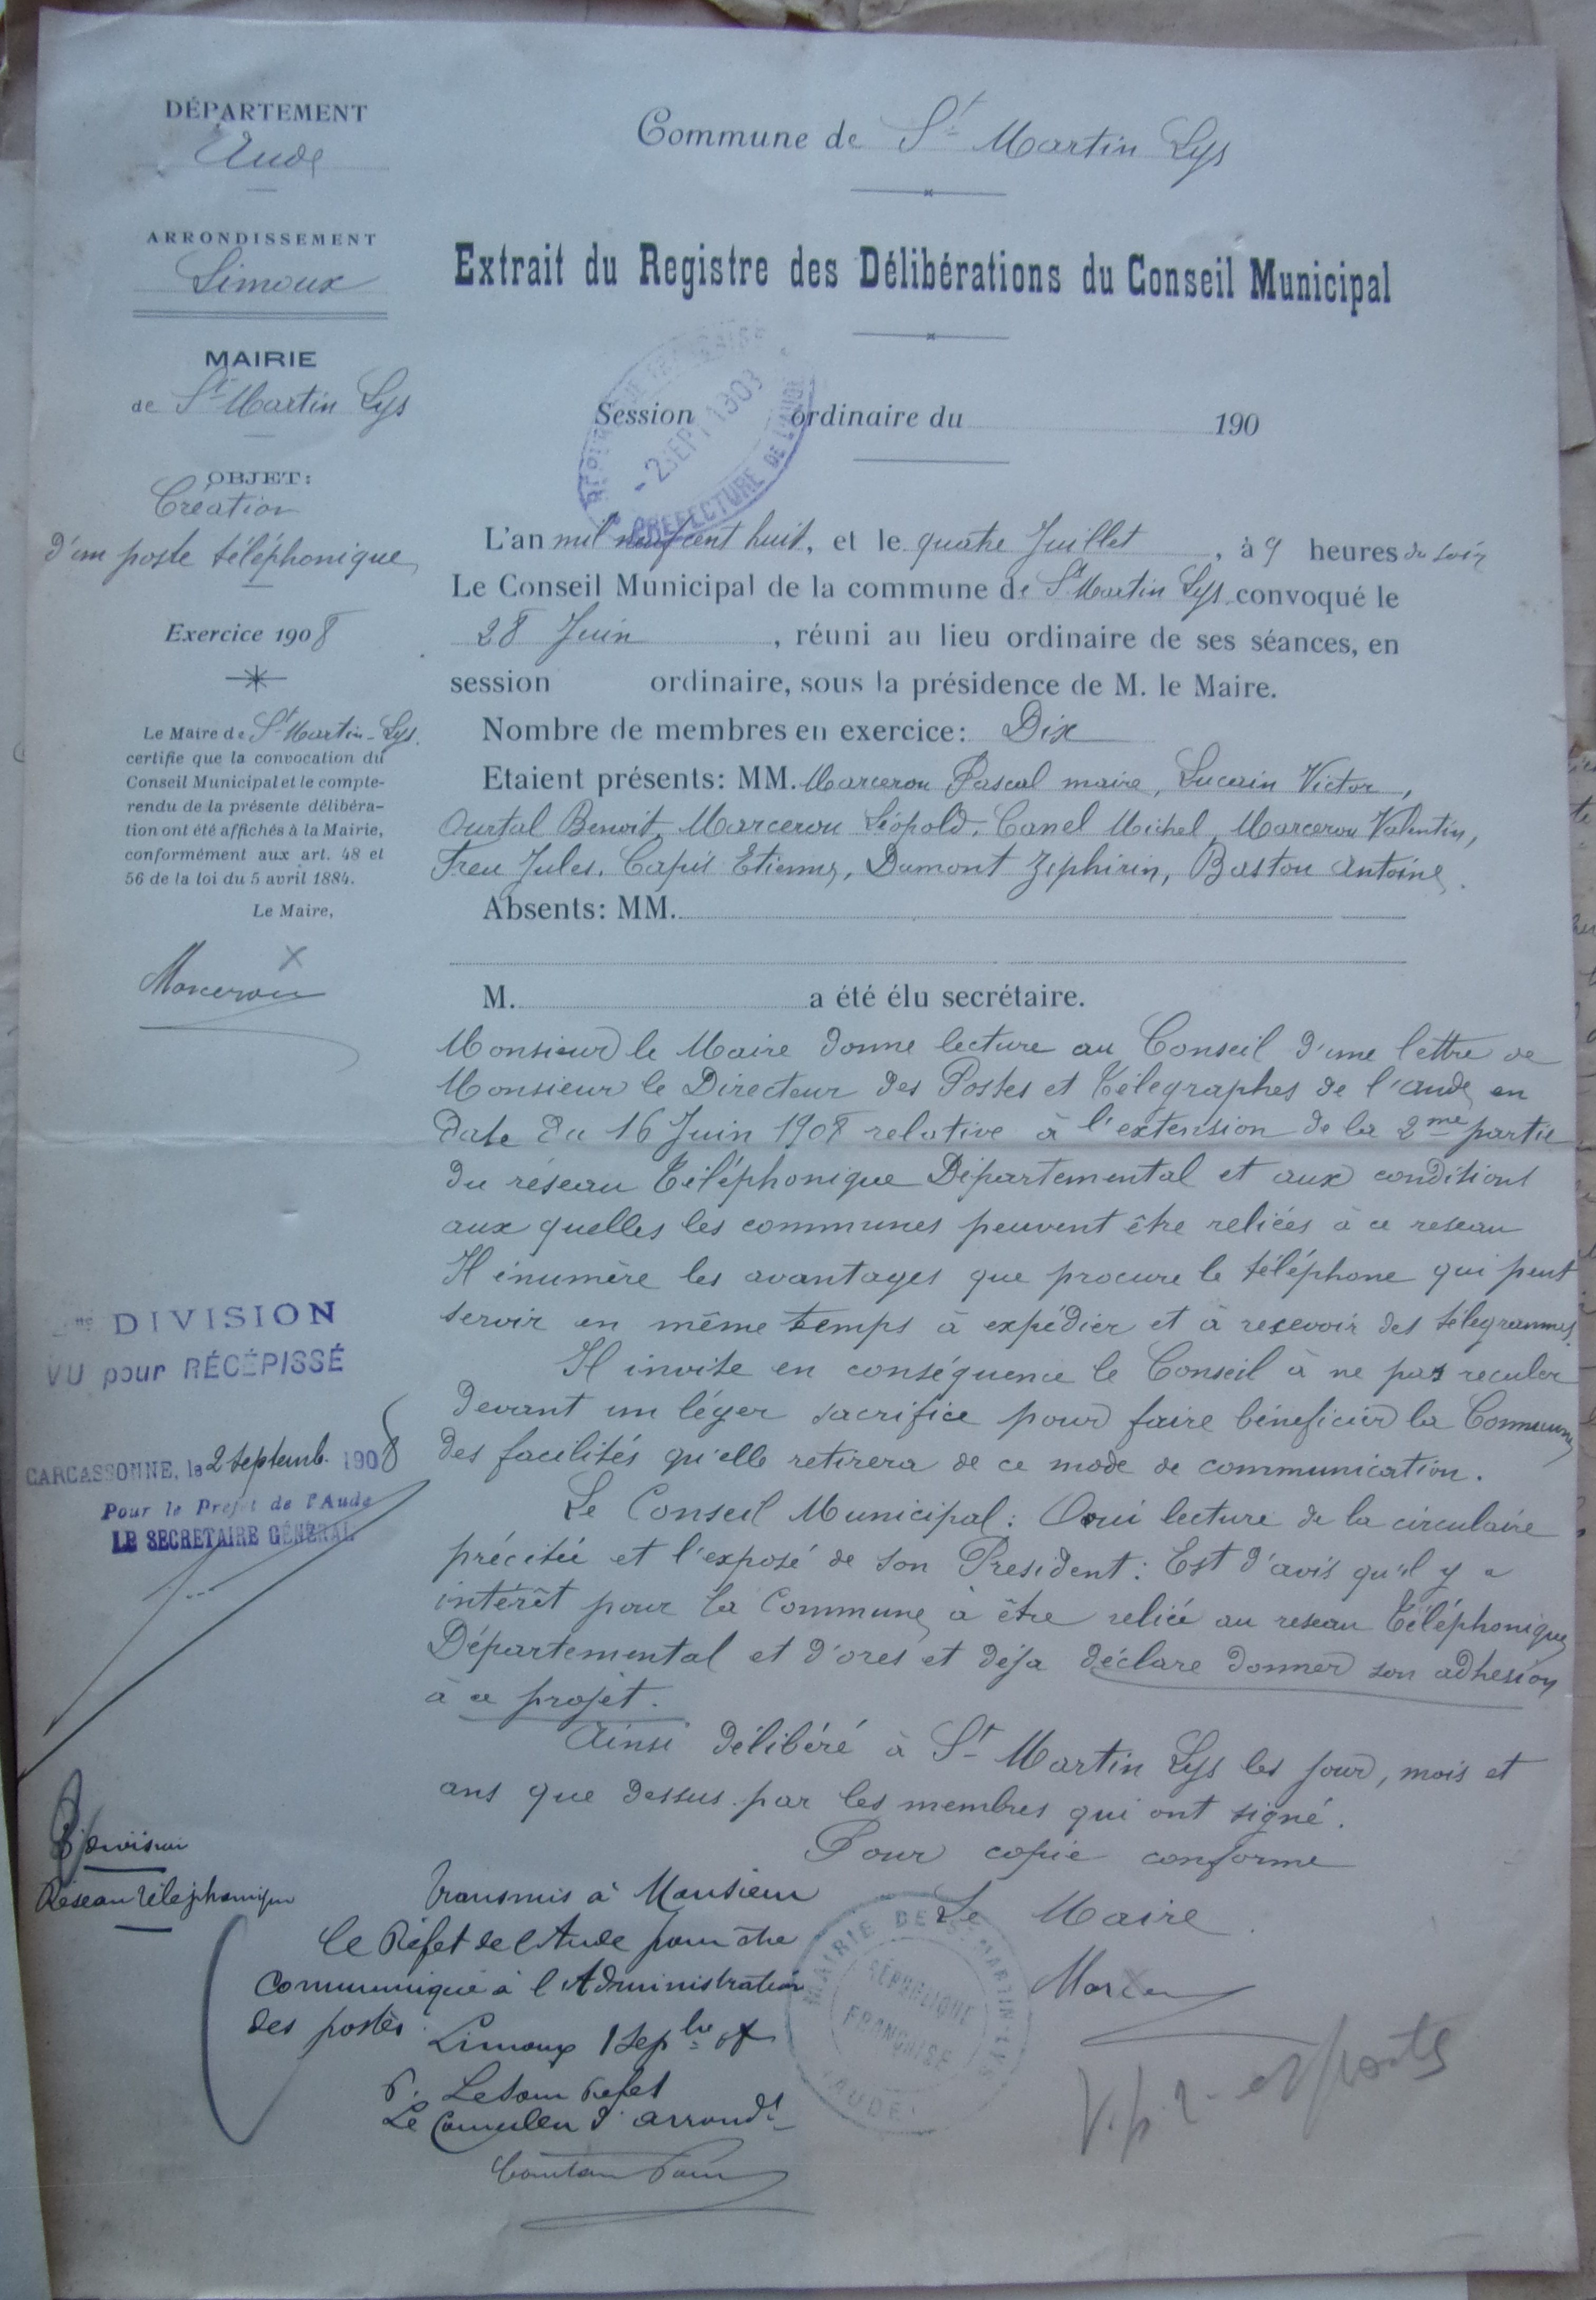 DÉPARTEMENT
Aude
ARRONDISSEMENT
Limoux
MAIRIE
de St Martin Lys
OBJET:
Création
d'un poste téléphonique
Exercice 1908
Le Maire de St Martin-Lys
certifie que la convocation du
Conseil Municipal et le compte-
rendu de la présente délibéra-
tion ont été affichés à la Mairie,
conformément aux art. 48 et
56 de la loi du 5 avril 1884.
Le Maire,
Marcerou
DIVISION
VU pour RÉCÉPISSÉ
CARCASSONNE, le 2 septemb. 1908
Pour le Préfet de l'Aude
LE SECRETAIRE GÉNÉRAL
Division
Réseau téléphonique
Commune de St Martin Lys
Extrait du Registre des Délibérations du Conseil Municipal
Session ordinaire du 190
REPUBLIQUE FRANÇAISE
- 2 SEPT 1908
PREFECTURE DE L'AUDE
L'an mil neuf cent huit, et le quatre Juillet, à 9 heures du soir
Le Conseil Municipal de la commune de St Martin Lys convoqué le
28 Juin, réuni au lieu ordinaire de ses séances, en
session ordinaire, sous la présidence de M. le Maire.
Nombre de membres en exercice: Dix
Etaient présents: MM. Marcerou Pascal maire, Lucain Victor,
Ourtal Benoit, Marcerou Léopold, Canel Michel, Marcerou Valentin,
Freu Jules, Capus Etienne, Dumont Zéphirin, Bastou Antoine.
Absents: MM.
M. a été élu secrétaire.
Monsieur le Maire donne lecture au Conseil d'une lettre de
Monsieur le Directeur des Postes et Télégraphes de l'aude en
date du 16 Juin 1908 relative à l'extension de la 2me partie
du réseau Téléphonique Départemental et aux conditions
aux quelles les communes peuvent être reliées à ce reseau
Il énumère les avantages que procure le téléphone qui peut
servir en même temps à expédier et à recevoir des télégrammes.
Il invite en conséquence le Conseil à ne pas reculer
devant un léger sacrifice pour faire bénéficier la Commune
des facilités qu'elle retirera de ce mode de communication.
Le Conseil Municipal: Ouï lecture de la circulaire
précitée et l'exposé de son Président: Est d'avis qu'il y a
intérêt pour la Commune à être reliée au reseau Téléphonique
Départemental et d'ores et déja déclare donner son adhesion
à ce projet.
Ainsi délibéré à St Martin Lys les jour, mois et
ans que dessus par les membres qui ont signé.
Pour copie conforme
Le Maire
MAIRIE DE ST MARTIN-LYS
RÉPUBLIQUE
FRANÇAISE
(AUDE)
Transmis à Monsieur
le Préfet de l'Aude pour être
communiqué à l'Administration
des postes.
Limoux 1 Sepbre 08
P. Le Sous Préfet
Le Conseiller d'arrondt